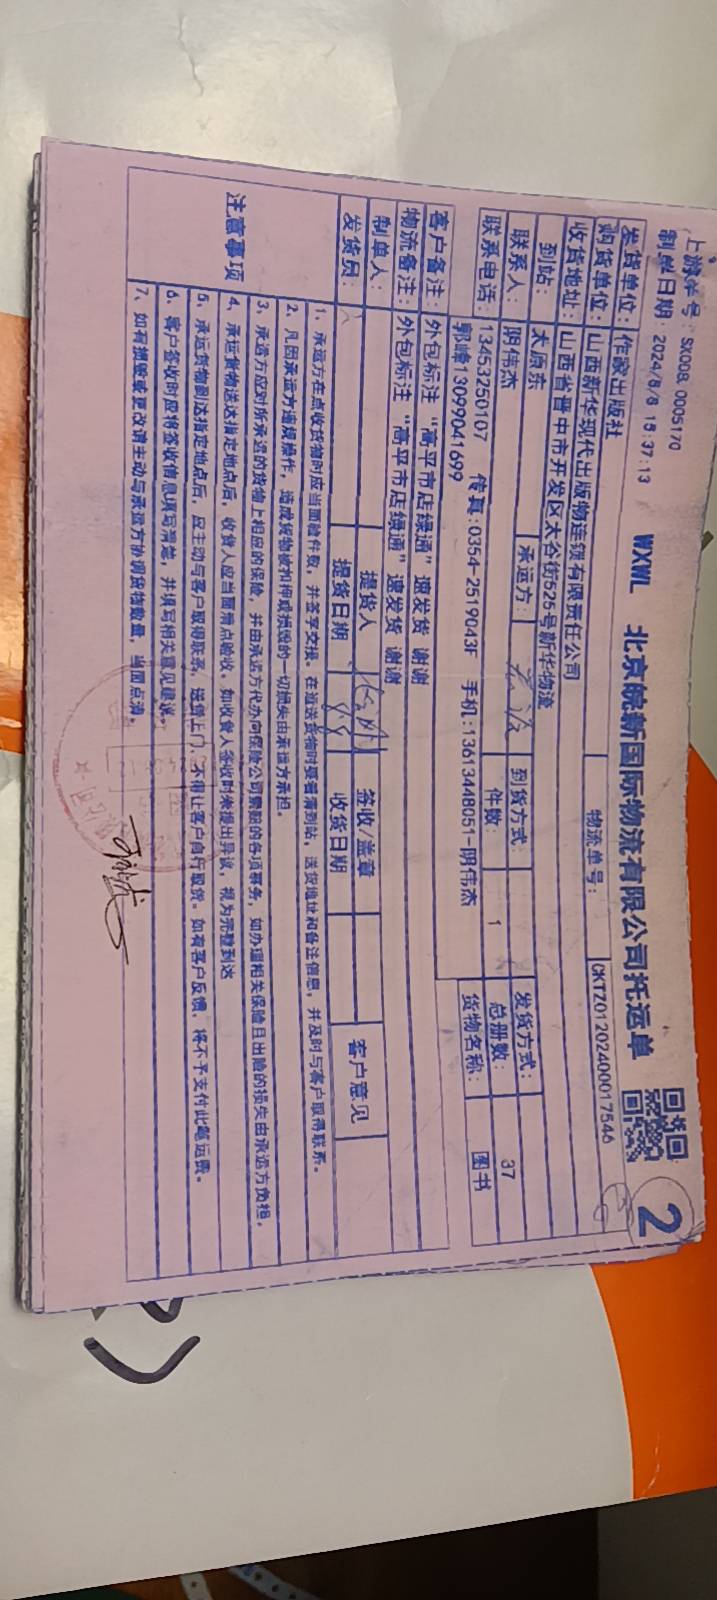 上游单号：SX00B_0005170
制单日期：2024/8/8 15:37:13
WXWL 北京皖新国际物流有限公司托运单
2
发货单位：作家出版社
购货单位：山西新华现代出版物连锁有限责任公司 物流单号：CKTZ01202400017546
收货地址：山西省晋中市开发区太谷街525号新华物流
到站：太原东 承运方： 到货方式： 发货方式：
联系人：阴伟杰 件数：1 总册数：37
联系电话：13453250107 传真:0354-2519043F 手机:13613448051-阴伟杰 货物名称：图书
郭峰13099041699
客户备注：外包标注“高平市店绿通”速发货 谢谢
物流备注：外包标注“高平市店绿通”速发货 谢谢
制单人： 提货人 签收/盖章 客户意见
发货员： 提货日期 收货日期
注意事项
1、承运方在点收货物时应当面验件数，并签字交接。在运送货物时要看清到站，送货地址和备注信息，并及时与客户取得联系。
2、凡因承运方违规操作，造成货物被扣押或损毁的一切损失由承运方承担。
3、承运方应对所承运的货物上相应的保险，并由承运方代办向保险公司索赔的各项事务，如办理相关保险且出险的损失由承运方负担。
4、承运货物送达指定地点后，收货人应当面清点验收。如收货人签收时未提出异议，视为完整到达
5、承运货物到达指定地点后，应主动与客户取得联系，送货上门，不得让客户自行取货。如有客户反馈，将不予支付此笔运费。
6、客户签收时应将签收信息填写清楚，并填写相关意见建议。
7、如有损毁或更改请主动与承运方协调货物数量，当面点清。